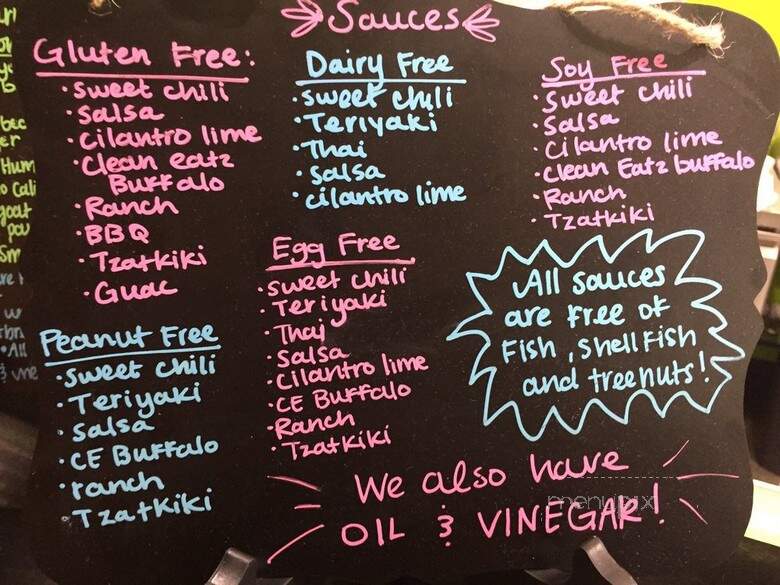 Sauces
Gluten Free:
• sweet chili
• Salsa
• cilantro lime
• Clean eatz
Buffalo
• Ranch
• BBQ
• Tzatkiki
• Guac
Peanut Free
• sweet chili
• Teriyaki
• salsa
• CE Buffalo
• ranch
• Tzatkiki
Dairy Free
• sweet chili
• Teriyaki
• Thai
• salsa
• cilantro lime
Egg Free
• sweet chili
• Teriyaki
• Thai
• Salsa
• Cilantro lime
• CE Buffalo
• Ranch
• Tzatkiki
Soy Free
• Sweet chili
• Salsa
• Cilantro lime
• Clean Eatz buffalo
• Ranch
• Tzatkiki
All sauces
are free of
Fish, Shellfish
and treenuts!
We also have
OIL & VINEGAR!
menupix